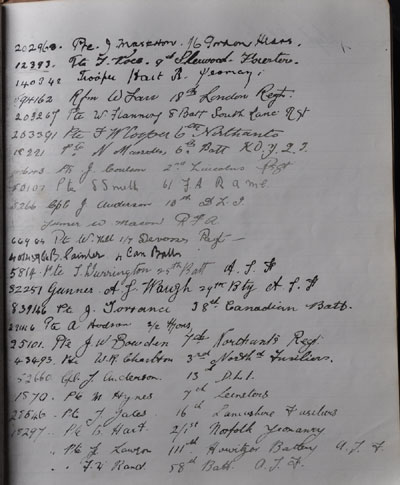 202960. Pte. J Marston. 1/6 Gordon Hldrs.
12393. Pte J Voce. 9th Sherwood Forester.
140342 Trooper Hart R. Yeomcy;
Rfm W Farr 18th London Regt.
203267 Pte W Flannery 8 Batt South Lanc Rgt
203391 Pte F W Cooper 6th Northants
Pte N Marsden, 6th Batt K.O.Y.L.I.
Pte J. Coulson 2nd Lincolns Regt
Pte S Smith 61 F A R a m c.
8266 Cpl J Anderson 10th D L I
Gunner W Mason R F A
Pte W. Hill 1/7 Devons Regt
4 Can Batts
5814 Pte T. Durrington 25th Batt A. I. F
32251 Gunner A. L. Waugh 29th Bty A. I F
839166 Pte J. Torrance 38th Canadian Batt.
Pte A Hodson
25101. Pte J W Bowden 7th Northants Regt
43493. Pte W. R. Charlton 3rd North'd Fusiliers.
52660 Cpl J Anderson. 13th D.L.I.
1570. Pte M Hynes 7th Leinsters
Pte J Jones 16th Lancashire Fusiliers
19297 Pte G. Hart. 2/1st Norfolk Yeomanry
" Pte J. Lawson 111th Howitzer Battery A. I. F.
" " F. W Rand 58th Batt. A. I. F.